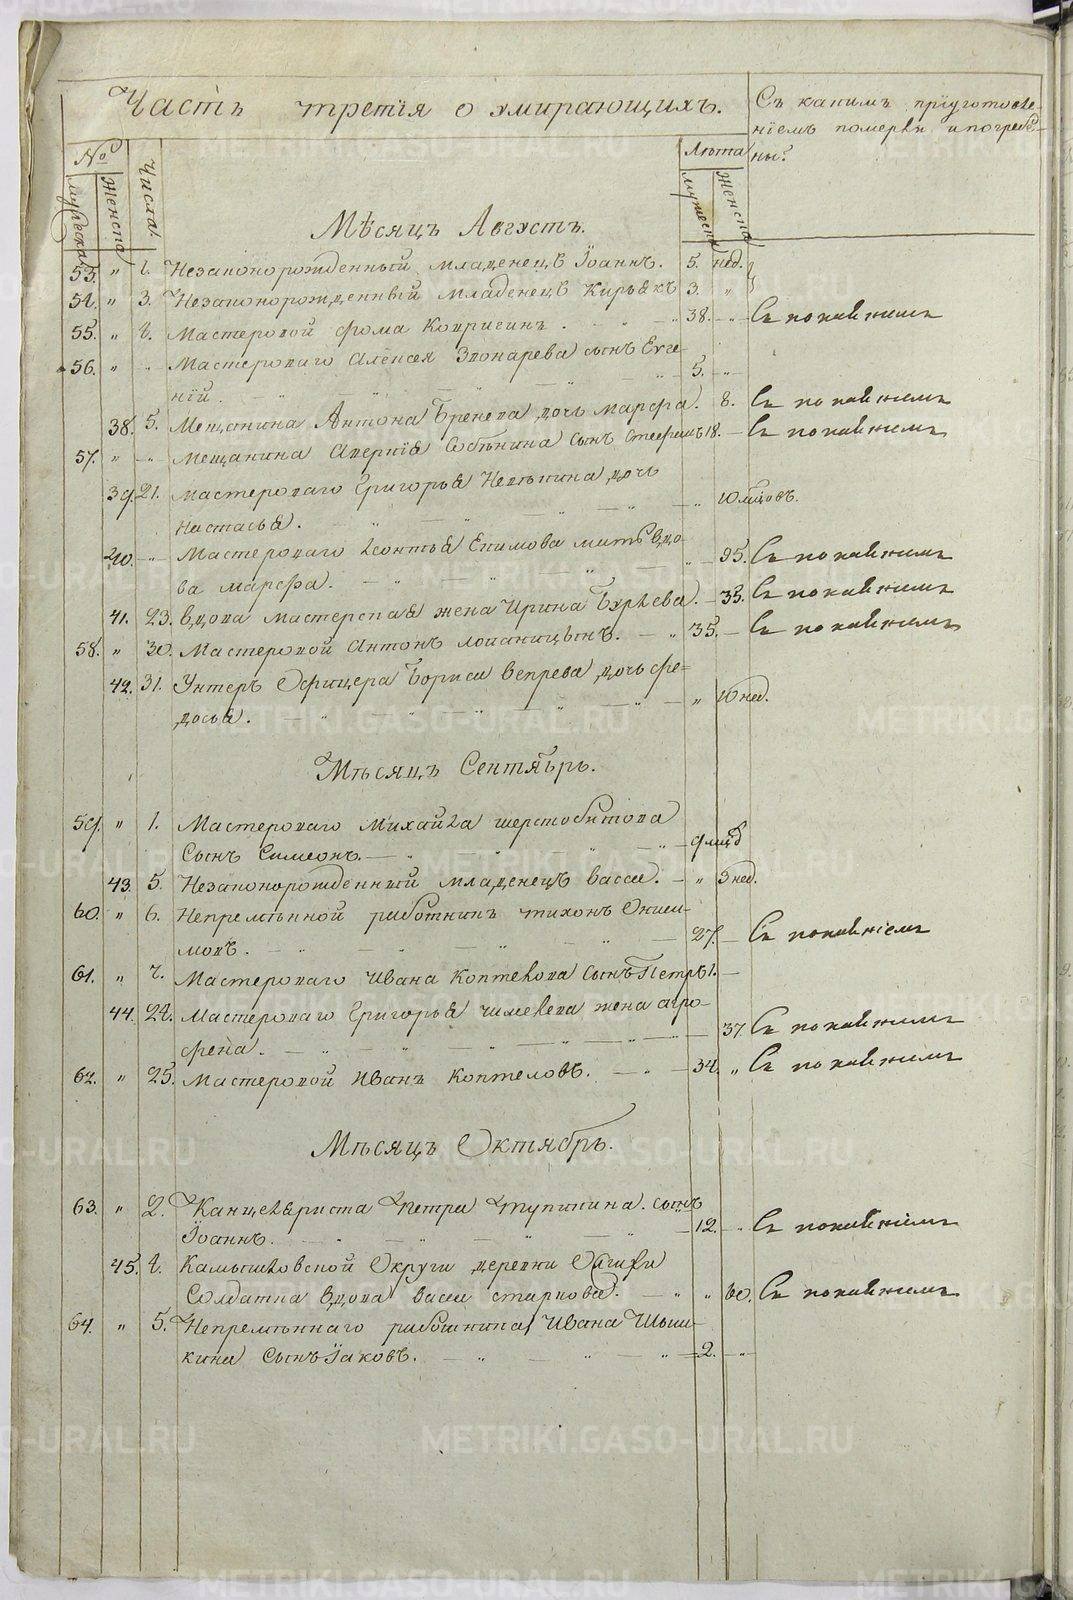 Часть третія о умирающихъ.
Съ какимъ пріуготовле-
ніемъ померли и погребе-
ны?
№
Числа
Лѣта
мужеска
женска
мужеска
женска
Мѣсяцъ Августъ.
53. " 1. Незаконорожденный младенецъ Іоаннъ. 5. нед.
54. " 3. Незаконорожденный младенецъ 3. "
55. " 4. Мастеровой Фома 38. - Съ покаяніемъ
56. " " Мастероваго Алексея Звонарева сынъ Евге-
ній. 5. "
38. 5. Мещанина Антона дочь Марфа. 8. Съ покаяніемъ
57. " " Мещанина сынъ Стефанъ 18. - Съ покаяніемъ
39. 21. Мастероваго Григорья дочь
Настасья. " 10 мцовъ.
40. " Мастероваго Леонтья Екимова мать вдо-
ва Марфа. " 95. Съ покаяніемъ
41. 23. вдова мастерская жена Ирина - 35. Съ покаяніемъ
58. " 30. Мастеровой Антонъ 35. - Съ покаяніемъ
42. 31. Унтеръ Офицера Бориса Вепрева дочь Фе-
досья. " 10 нед.
Мѣсяцъ Сентябрь.
59. " 1. Мастероваго Михайла Шерстобитова
сынъ Симеонъ. 9 мцъ
43. 5. Незаконорожденный младенецъ Васса. " 3 нед.
60. " 6. Непремѣнной работникъ Тихонъ
27. - Съ покаяніемъ
61. " 7. Мастероваго Ивана Коптелова сынъ Петръ 1. -
44. 24. Мастероваго Григорья жена Агро-
фена. 37. Съ покаяніемъ
62. " 25. Мастеровой Иванъ Коптеловъ. 34. " Съ покаяніемъ
Мѣсяцъ Октябрь.
63. " 2. Канцеляриста Петра Тупикина. сынъ
Іоаннъ. 12. " Съ покаяніемъ
45. 4. Камышловской Округи деревни
Солдатка вдова Васса Старкова. " 60. Съ покаяніемъ
64. " 5. Непремѣннаго работника Ивана Шиш-
кина сынъ Іаковъ. 2. "
METRIKI.GASO-URAL.RU